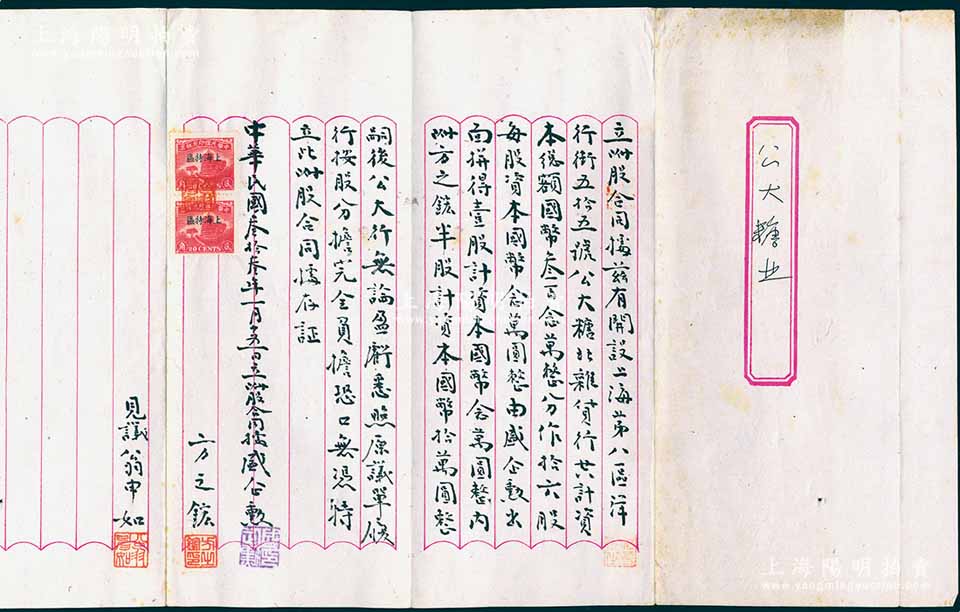 公大糖北
立附股合同據兹有開設上海第八區洋
行街五拾五號公大糖北雜貨行共計資
本總額國幣叁百念萬整分作拾六股
每股資本國幣念萬圓整由盛企勲出
面拼得壹股計資本國幣念萬圓整內
附方之鋐半股計資本國幣拾萬圓整
嗣後公大行無論盈虧悉照原議單候
行按股分擔完全負擔恐口無憑特
立此附股合同據存証
中華民國叁拾叁年一月五日立附股合同據盛企勲
方之鋐
見議翁申如
上海特區
上海特區
20 CENTS
上海陽明拍賣
上海陽明拍賣
www.yangmingauction.com